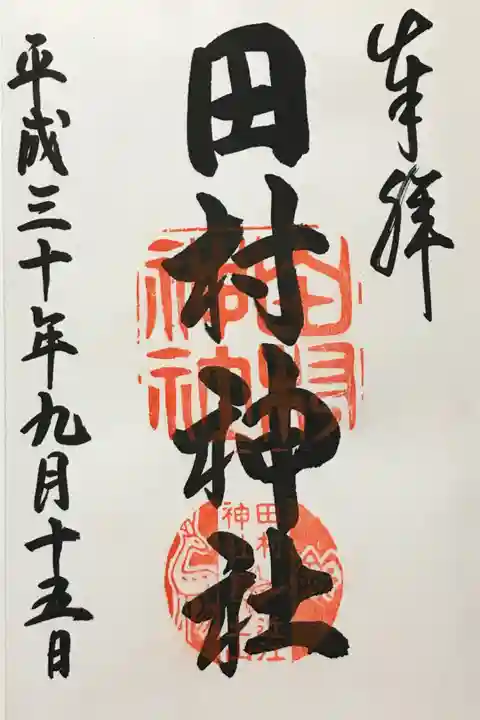 奉拝
田村神社
平成三十年九月十五日
田村
神社